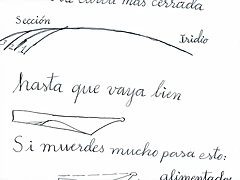 curva más cerrada
Sección
Iridio
hasta que vaya bien
Si muerdes mucho pasa esto:
alimentador